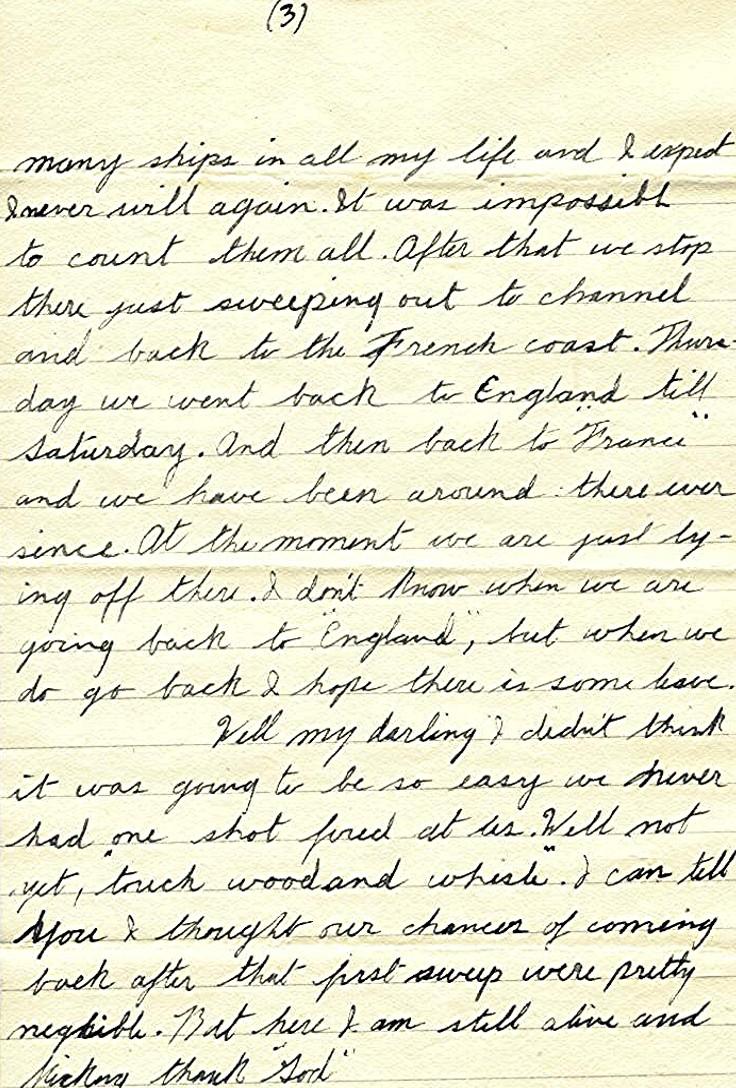 (3)
many ships in all my life and I expect
I never will again. It was impossibl
to count them all. After that we stop
there just sweeping out to channel
and back to the French coast. Thurs-
day we went back to England till
Saturday. And then back to "France"
and we have been around there ever
since. At the moment we are just ly-
ing off there. I don't know when we are
going back to "England", but when we
do go back I hope there is some leave.
Well my darling I didn't think
it was going to be so easy we never
had one shot fired at us. Well not
yet, "touch wood and whistle". I can tell
you I thought our chances of coming
back after that first sweep were pretty
neglible. But here I am still alive and
kicking thank "God"